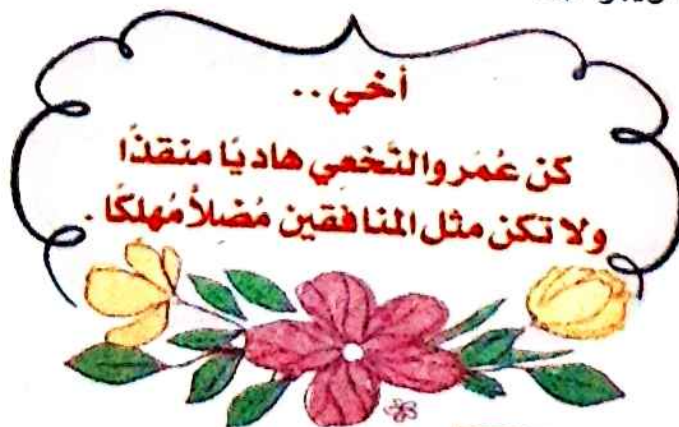 أخي ..
كن عُمَر والنَّخعِي هاديًا منقذًا
ولا تكن مثل المنافقين مُضلاً مُهلكًا .